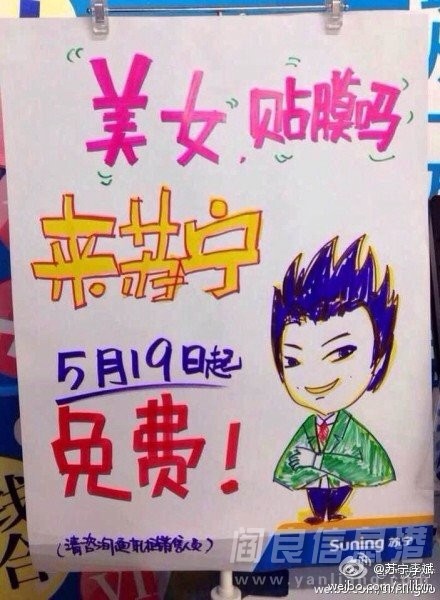 美女,贴膜吗
来苏宁
5月19日起
免费!
(请咨询通讯柜销售人员)
Suning 苏宁
阎良信息港
www.yanliang
@苏宁李斌
weibo.com/nliguo